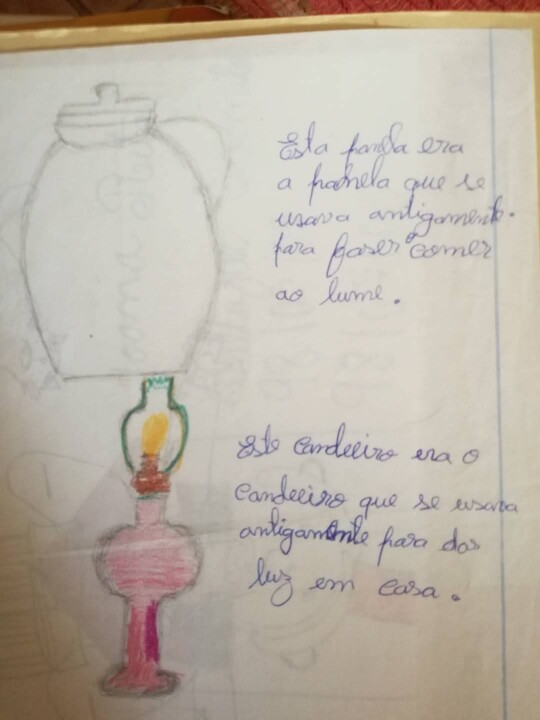 Esta panela era
a panela que se
usava antigamente.
para faser o comer
ao lume.
Este candeeiro era o
candeeiro que se usava
antigamente para dar
luz em casa.